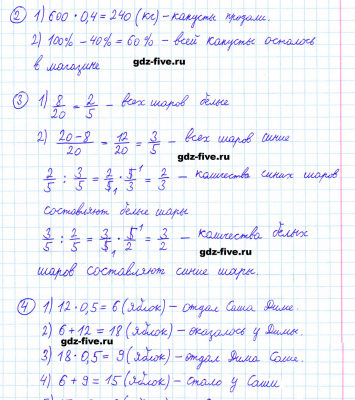 ② 1) 600 · 0,4 = 240 (кг) – капусты продали.
2) 100% – 40% = 60% – всей капусты осталось
в магазине
gdz-five.ru
③ 1) 8/20 = 2/5 – всех шаров белые
gdz-five.ru
2) (20-8)/20 = 12/20 = 3/5 – всех шаров синие
gdz-five.ru
2/5 : 3/5 = 2/5₁ · 5¹/3 = 2/3 – количества синих шаров
составляют белые шары
gdz-five.ru
3/5 : 2/5 = 3/5₁ · 5¹/2 = 3/2 – количества белых
gdz-five.ru
шаров составляют синие шары.
④ 1) 12 · 0,5 = 6 (яблок) – отдал Саша Диме.
2) 6 + 12 = 18 (яблок) – оказалось у Димы.
gdz-five.ru
3) 18 · 0,5 = 9 (яблок) – отдал Дима Саше.
4) 6 + 9 = 15 (яблок) – стало у Саши
gdz-five.ru